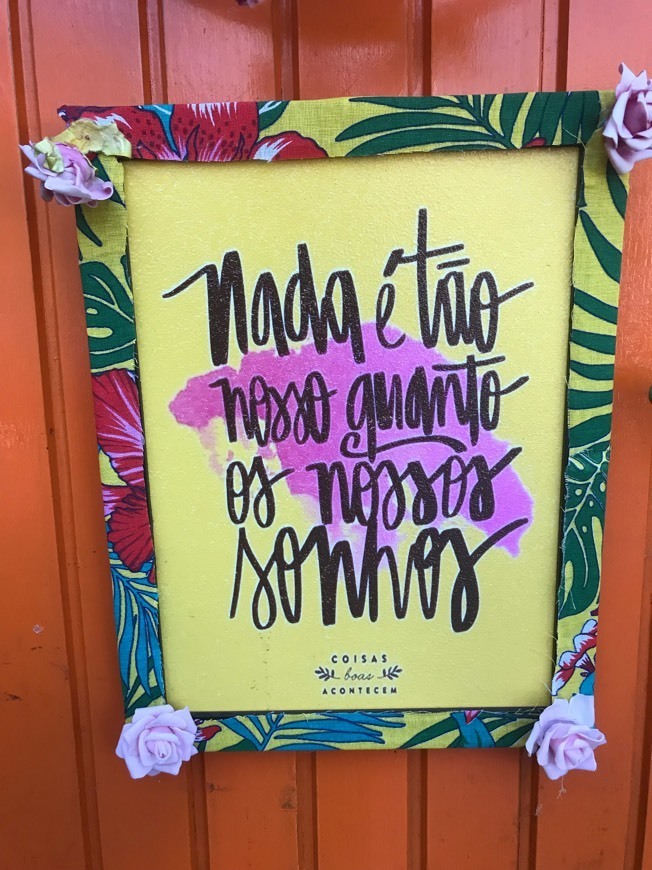 Nada é tão
nosso quanto
os nossos
sonhos
COISAS
boas
ACONTECEM